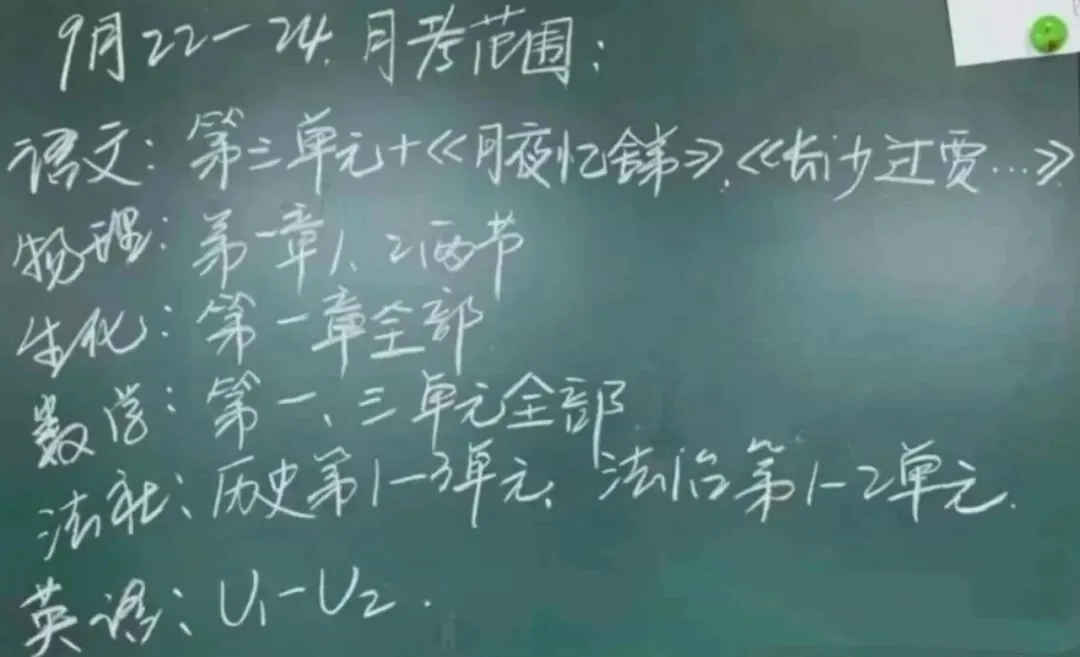 9月22-24.月考范围:
语文:第三单元+《月夜忆舍弟》,《长沙过贾…》
物理:第一章1、2两节
生化:第一章全部
数学:第一、三单元全部
法社:历史第1-3单元,法治第1-2单元.
英语:U1-U2.